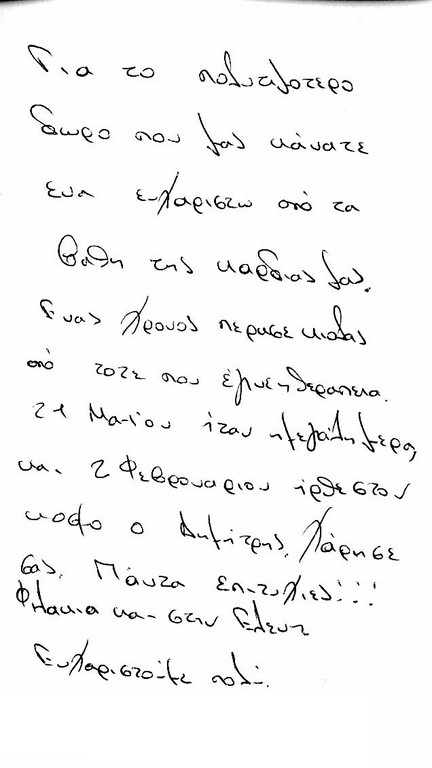 Για το πολυτιμοτερο
δωρο που μας κάνατε
ενα ευχαριστω από τα
βαθη της καρδιας μας.
Ενας χρονος περασε κιολας
από τοτε που έγινε η θεραπεια.
21 Μαϊου ήταν η μεγάλη μερα,
και 2 Φεβρουαριου ήρθε στον
κοσμο ο Δημήτρης. Χάρη σε
σας. Πάντα επιτυχίες!!!
Φιλακια και στην Ελενη
Ευχαριστούμε πολύ.